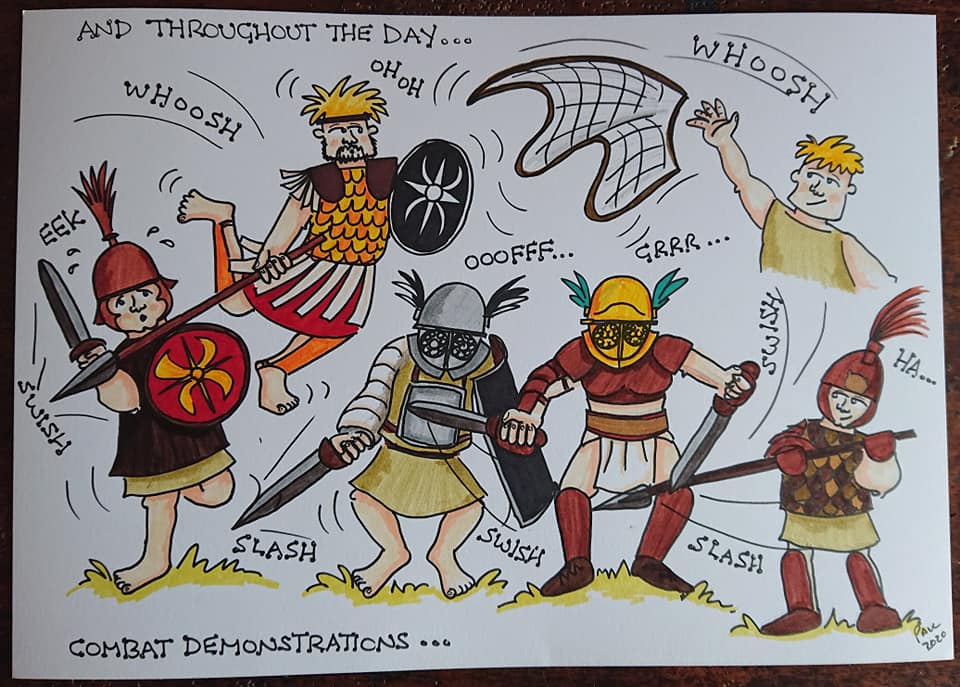 AND THROUGHOUT THE DAY...
WHOOSH
OH
OH
WHOOSH
EEK
OOOFFF...
GRRR...
SWISH
HA...
SWISH
SLASH
SWISH
SLASH
COMBAT DEMONSTRATIONS...
PAUL
2020